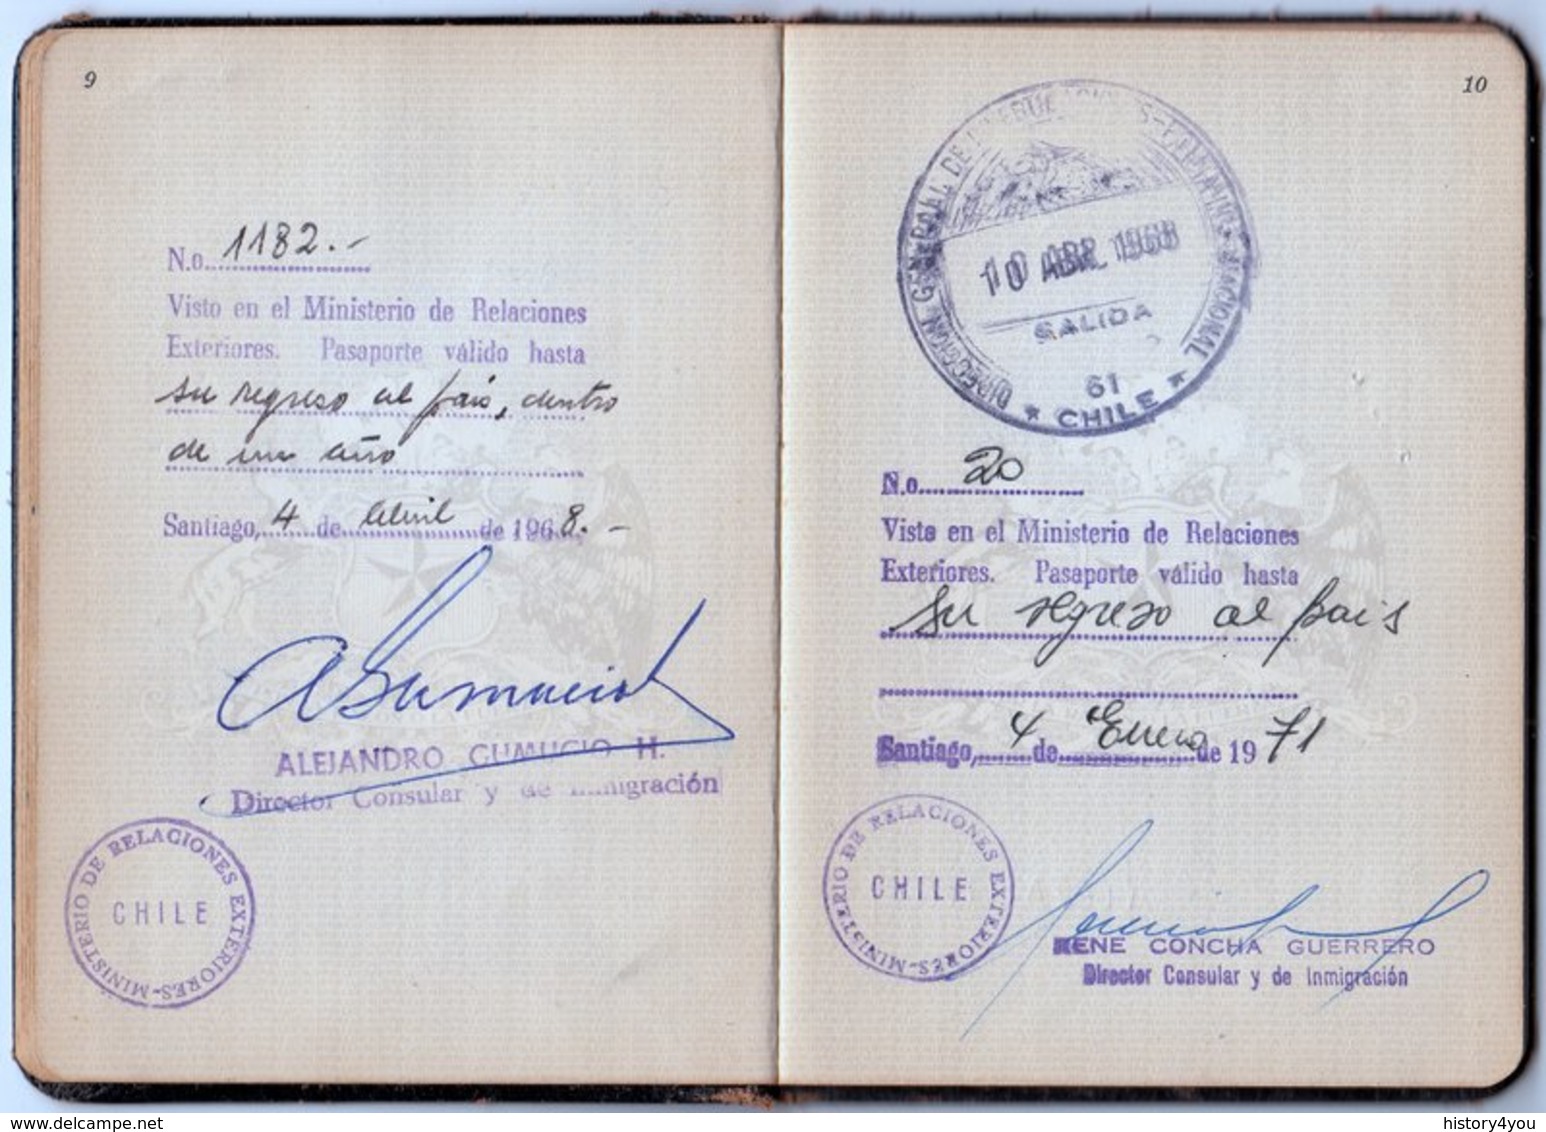 9
No. 1182.-
Visto en el Ministerio de Relaciones
Exteriores. Pasaporte válido hasta
su regreso al país, dentro
de un año
Santiago, 4 de Abril de 1968.-
ALEJANDRO GUMUCIO H.
Director Consular y de Inmigración
MINISTERIO DE RELACIONES EXTERIORES-
CHILE
10
DIRECCION GENERAL DE
10 ABR. 1968
SALIDA
61
★ CHILE ★
No. 20
Visto en el Ministerio de Relaciones
Exteriores. Pasaporte válido hasta
su regreso al país
Santiago, 4 de Enero de 1971
MINISTERIO DE RELACIONES EXTERIORES-
CHILE
RENE CONCHA GUERRERO
Director Consular y de Inmigración
delcampe.net
history4you